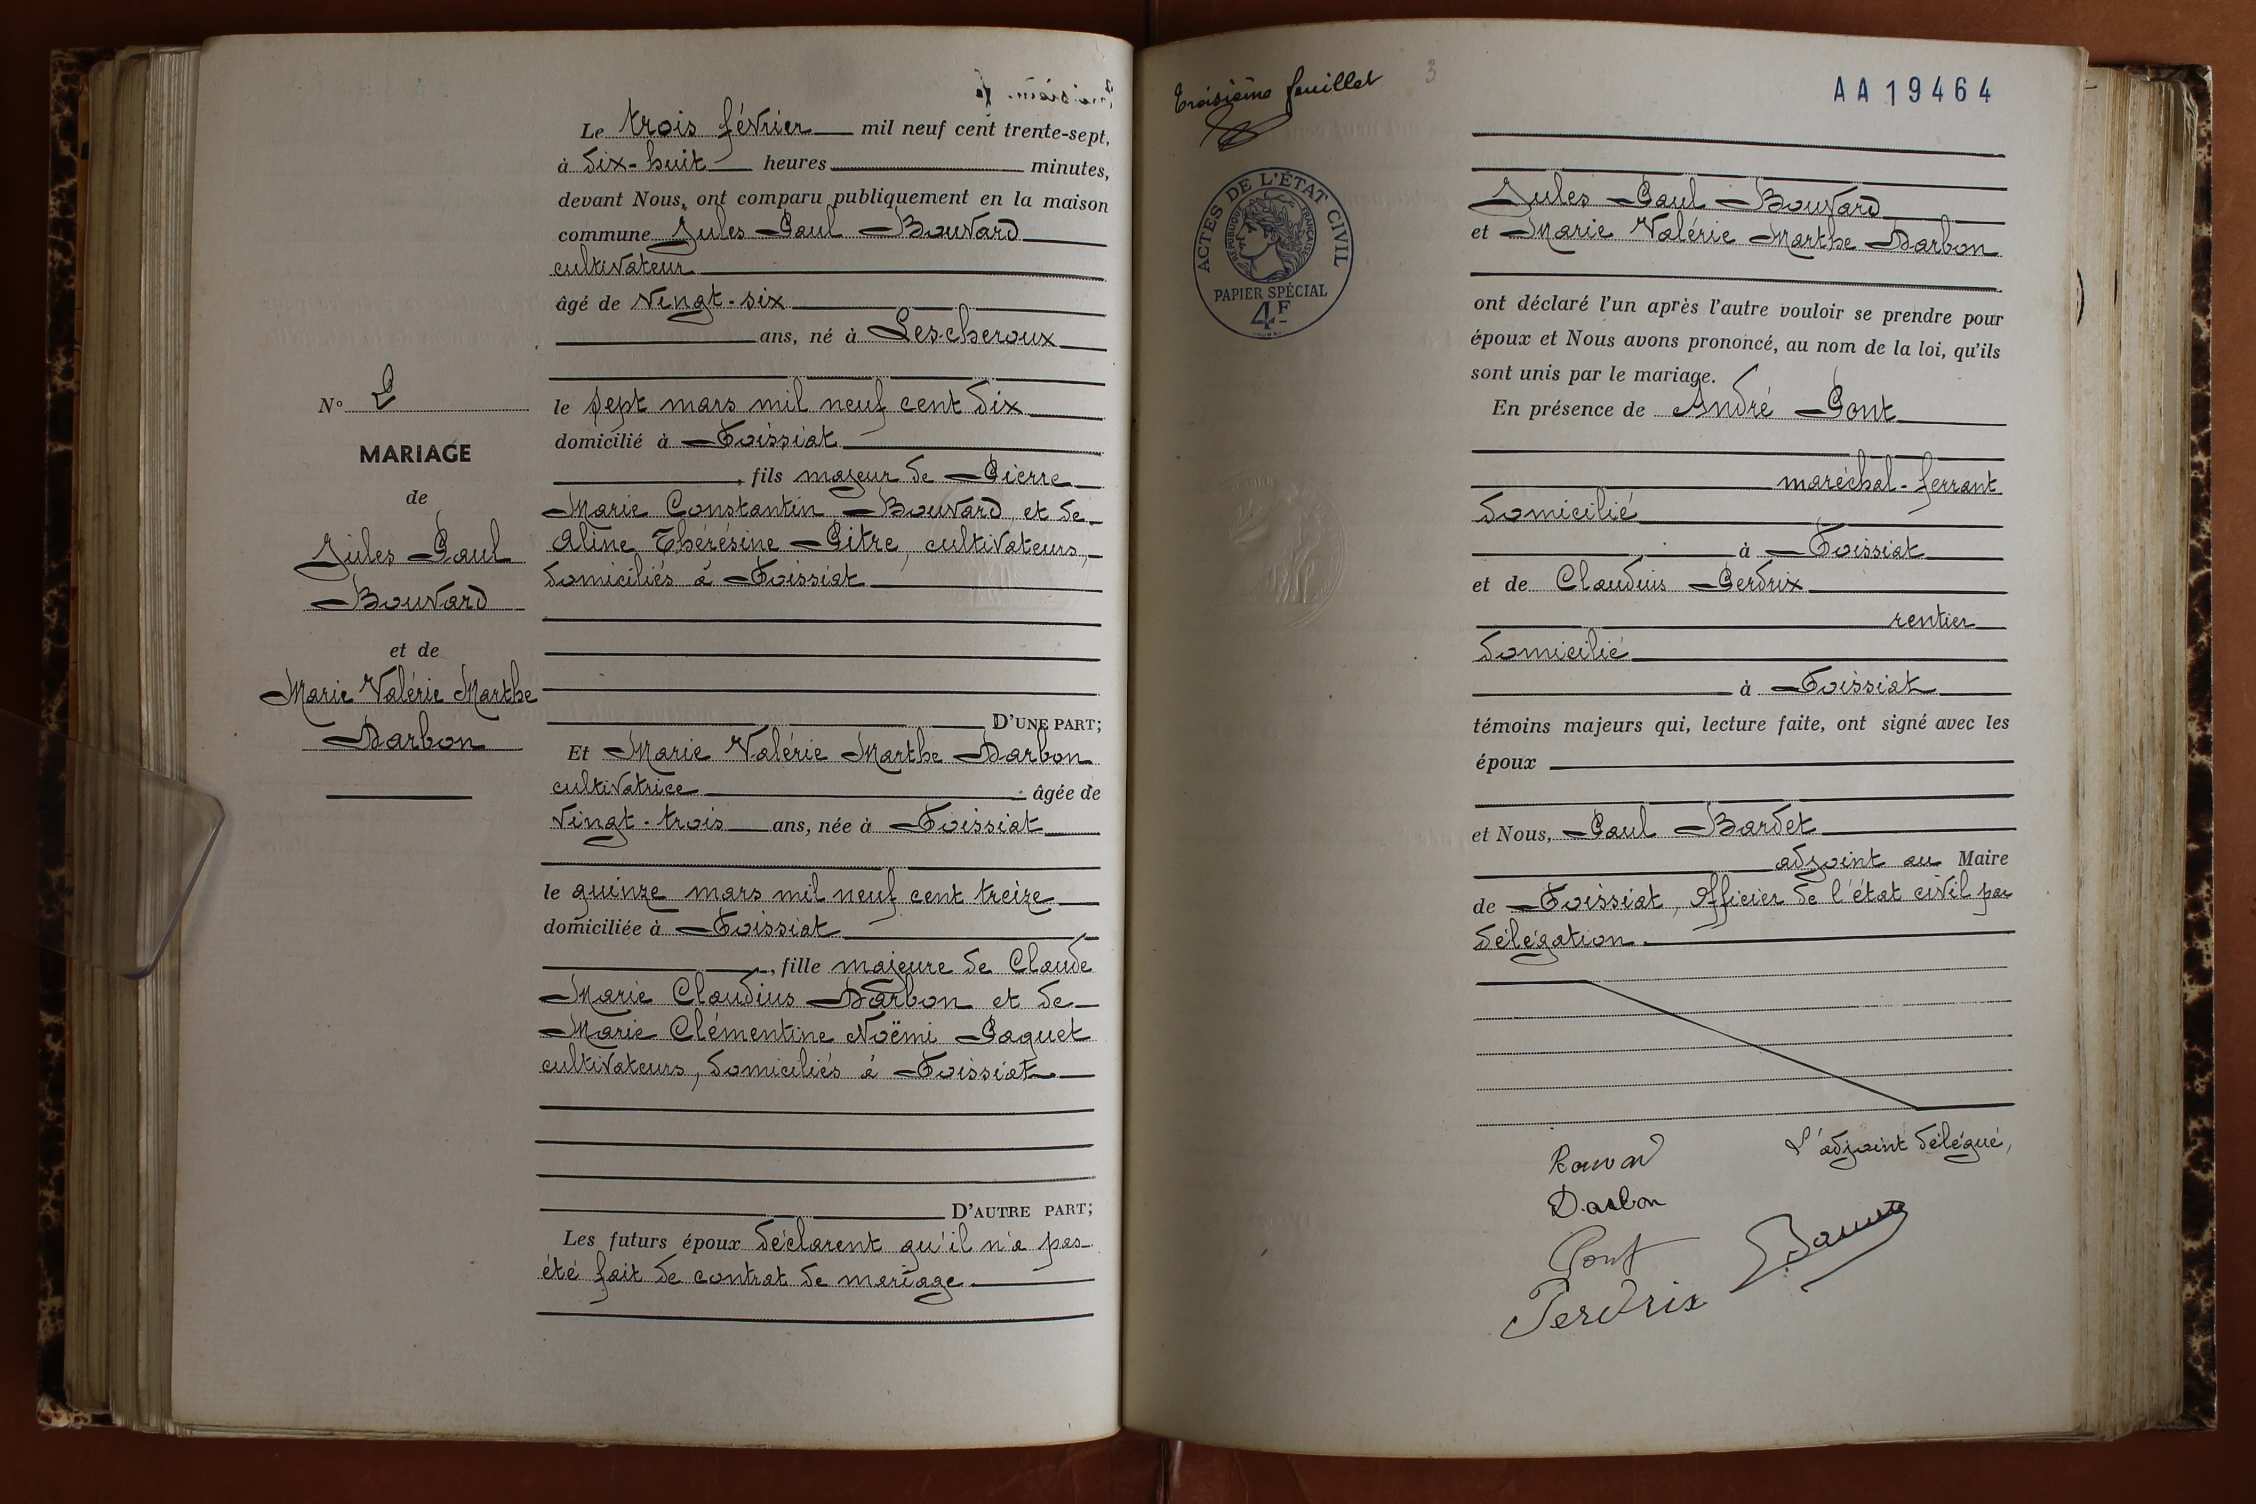 Le trois février mil neuf cent trente-sept,
à dix-huit heures minutes,
devant Nous, ont comparu publiquement en la maison
commune Jules Paul Bouvard
cultivateur
âgé de vingt-six
ans, né à Lescheroux
le sept mars mil neuf cent dix
domicilié à Foissiat
, fils majeur de Pierre
Marie Constantin Bouvard, et de
Aline Thérésine Pitre, cultivateurs,
domiciliés à Foissiat
D'UNE PART;
Et Marie Valérie Marthe Darbon
cultivatrice âgée de
vingt-trois ans, née à Foissiat
le quinze mars mil neuf cent treize
domiciliée à Foissiat
, fille majeure de Claude
Marie Claudius Darbon et de
Marie Clémentine Noëmi Paquet
cultivateurs, domiciliés à Foissiat
D'AUTRE PART;
Les futurs époux déclarent qu'il n'a pas
été fait de contrat de mariage.
N° 2
MARIAGE
de
Jules Paul
Bouvard
et de
Marie Valérie Marthe
Darbon
Troisième feuillet
3
AA19464
ACTES DE L'ÉTAT CIVIL
RÉPUBLIQUE FRANÇAISE
PAPIER SPÉCIAL
4F
Jules Paul Bouvard
et Marie Valérie Marthe Darbon
ont déclaré l'un après l'autre vouloir se prendre pour
époux et Nous avons prononcé, au nom de la loi, qu'ils
sont unis par le mariage.
En présence de André Pont
maréchal-ferrant
domicilié
à Foissiat
et de Claudius Perdrix
rentier
domicilié
à Foissiat
témoins majeurs qui, lecture faite, ont signé avec les
époux
et Nous, Paul Bardet
adjoint au Maire
de Foissiat, officier de l'état civil par
délégation.
L'adjoint délégué,
Bouvard
Darbon
Pont
Perdrix